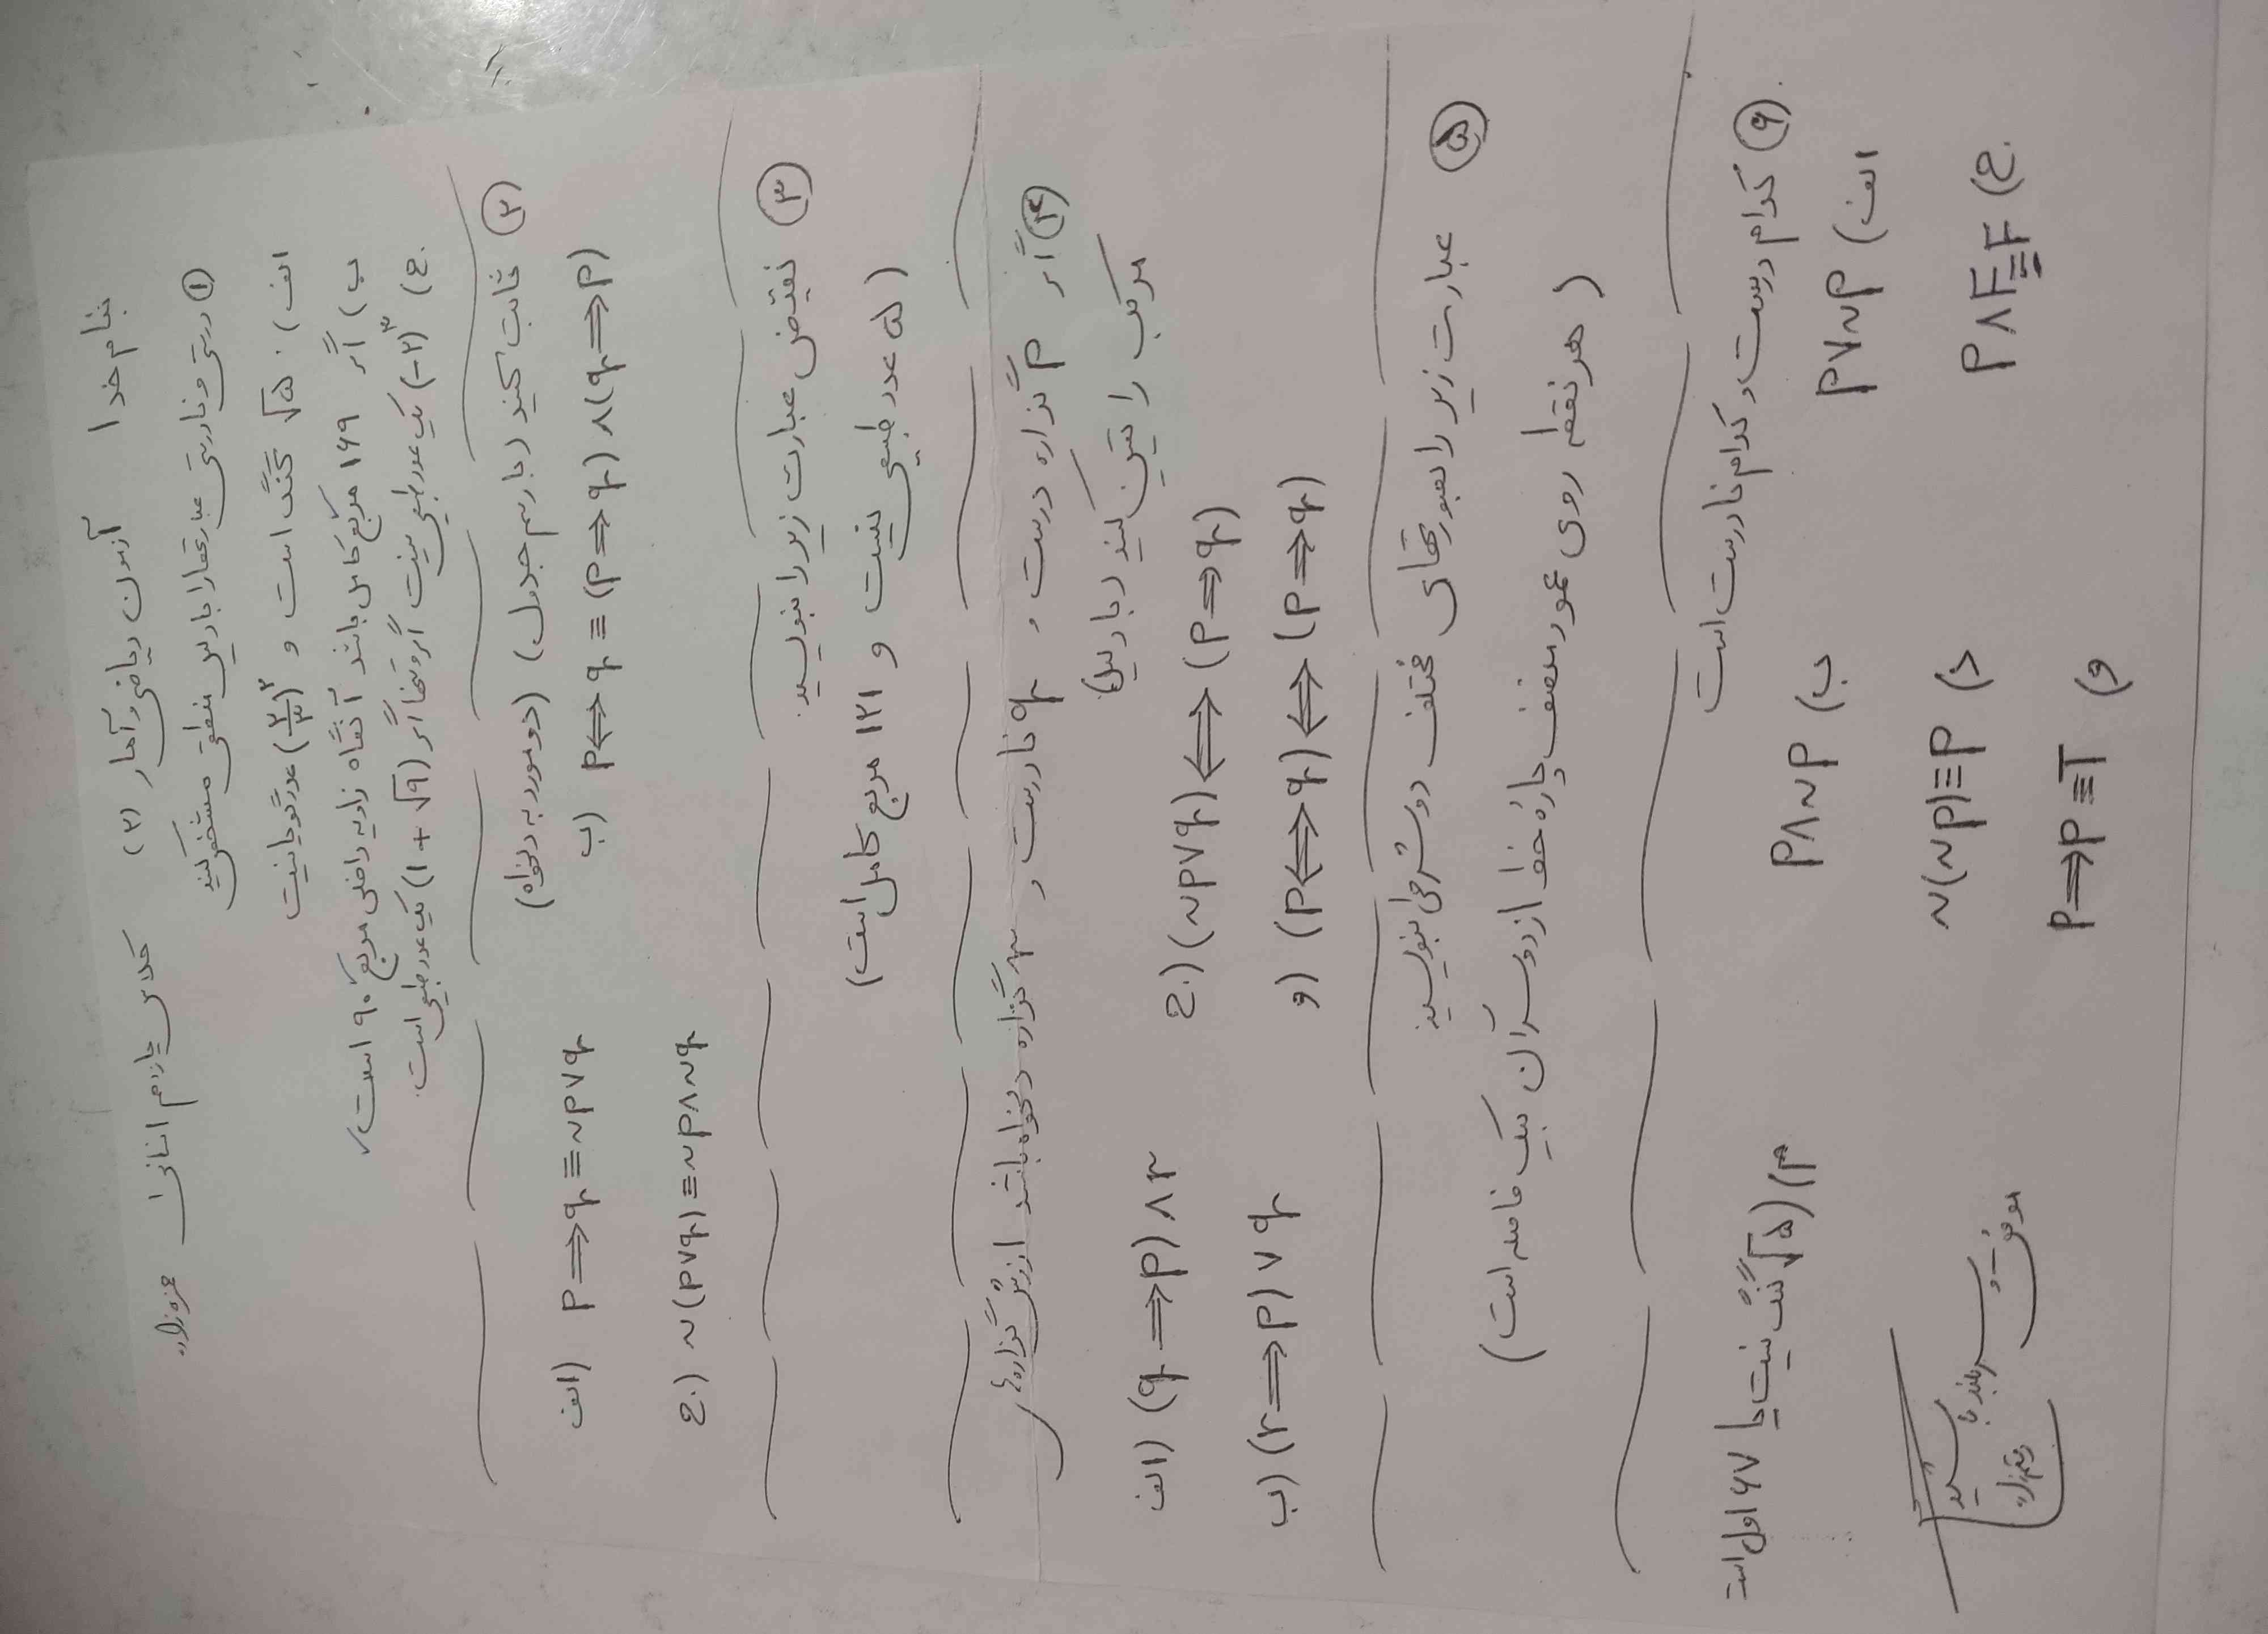 بنام خدا آزمون ریاضی و آمار (۲) کلاس یازدهم انسانی
① درستی و نادرستی عبارتهای را با دلیل منطقی مشخص کنید
الف) √۵ گنگ است و (۲/۳)^۲ عدد گویا نیست
ب) اگر ۱۶۹ مربع کامل باشد آنگاه زاویه داخلی مربع ۹۰° است
ج) (-۲)^۳ یک عدد طبیعی نیست اگر و تنها اگر (۱+√۹) یک عدد طبیعی است.
② ثابت کنید (با رسم جدول) (دو مورد به دلخواه)
الف) p ⟹ q ≡ ~p ∨ q
ب) p ⟺ q ≡ (p ⟹ q) ∧ (q ⟹ p)
ج) ~(p ∨ q) ≡ ~p ∧ ~q
③ نقیض عبارت زیر را بنویسید.
(۵ عدد طبیعی نیست و ۱۲۱ مربع کامل است)
④ اگر p گزاره درست و q نادرست و r گزاره دلخواه باشد ارزش گزاره‌های
مرکب را تعیین کنید (با دلیل)
الف) (q ⟹ p) ∧ r
ج) (~p ∨ q) ⟺ (p ⟹ q)
ب) (r ⟹ p) ∨ q
و) (p ⟺ q) ⟺ (p ⟹ q)
⑤ عبارت زیر را بصورتهای مختلف دو شرطی بنویسید
(هر نقطه روی عمود منصف پاره خط از دو سر آن بیک فاصله است)
⑥ کدام درست و کدام نادرست است
الف) p ∨ ~p
ب) p ∧ ~p
م) (√۵ گنگ نیست یا ۶۷ اول است
ج) p ∧ F ≡ F
د) ~(~p) ≡ p
و) p ⟹ p ≡ T
موفق و سربلند باشید